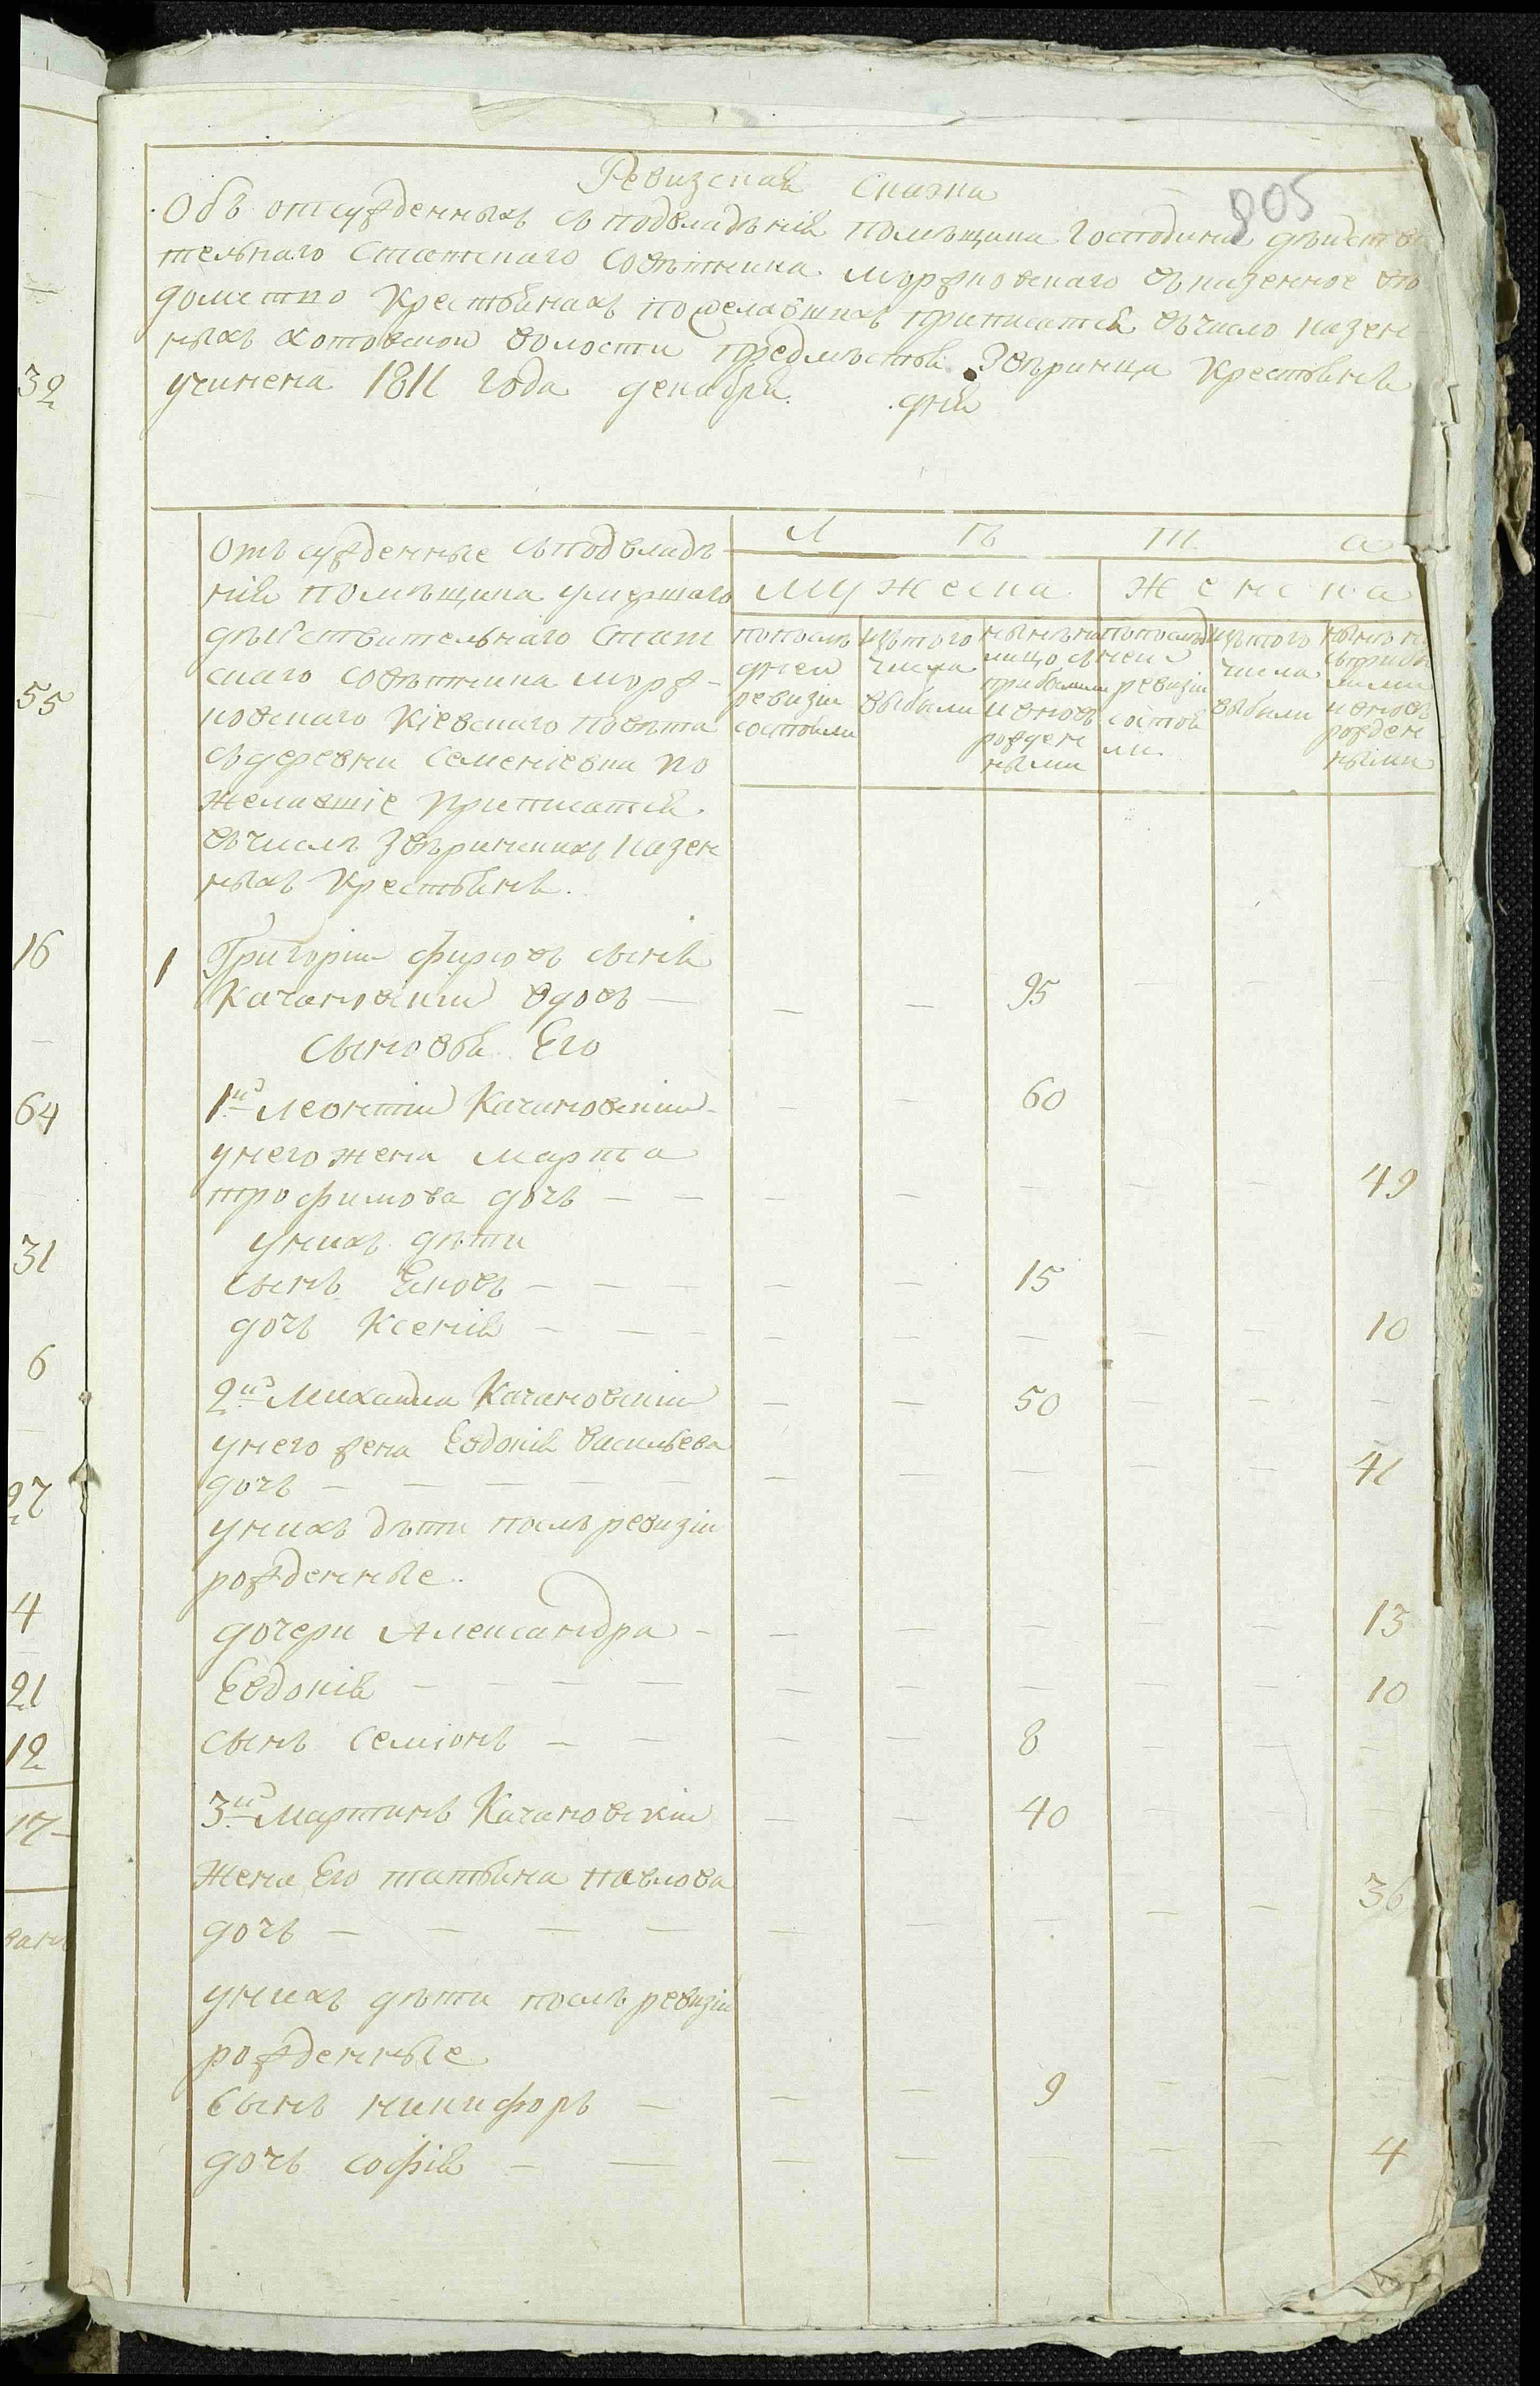 805
Ревизская Сказка
Объ отсужденныхъ съ подвладѣнія помѣщика Господина дѣйстви
тельнаго Статскаго Совѣтника Моржковскаго въ казенное вѣ
домство Крестьянахъ пожелавшихъ приписатся въ число казен
ныхъ хотовской волости предмѣстья Звѣринца Крестьянъ
учинена 1811 года декабря дня
Отъ сужденные съ подвладѣ
нія помѣщика умершаго
дѣйствительнаго Стат
скаго Совѣтника Морж-
ковскаго Кіевскаго повѣта
съ деревни Семеніовки по
желавшіе приписатся
въ числѣ Звѣринскихъ казен
ныхъ Крестьянъ.
Л Ѣ Т А
Мужеска Женска
по послѣ
дней
ревизіи
состояли
изъ того
числа
выбыли
нынѣ на
лицо съ
прибылыми
и вновь
рожден
ными
по послѣд
ней
ревизіи
состоя
ли
изъ того
числа
выбыли
нынѣ на
съ прибы
лыми
и вновь
рожден
ными
1 Григорій Фирсовъ сынъ
Качановскій вдовъ — — — 95 — — —
Сыновья Его
1й Леонтій Качановскій — — 60
у него жена Марта
трофимова дочь — — — — — — — 49
у нихъ дѣти
сынъ Яковъ — — — — — 15
дочь Ксенія — — — — — — — — 10
2й Михаила Качановскій — — 50 — — —
у него жена Евдокія Васильева
дочь — — — — — — — — — 41
у нихъ дѣти послѣ ревизіи
рожденные
дочери Александра — — — — — — 13
Евдокія — — — — — — — — — 10
сынъ Семіонъ — — — — 8 — — —
3й Мартинъ Качановскій — — 40 —
Жена Его татьяна павлова
дочь — — — — — — — — 36
у нихъ дѣти послѣ ревизіи
рожденные
Сынъ никифоръ — — — 9 — — —
дочь софія — — — — — — — 4
32
55
16
64
31
6
27
4
21
12
17